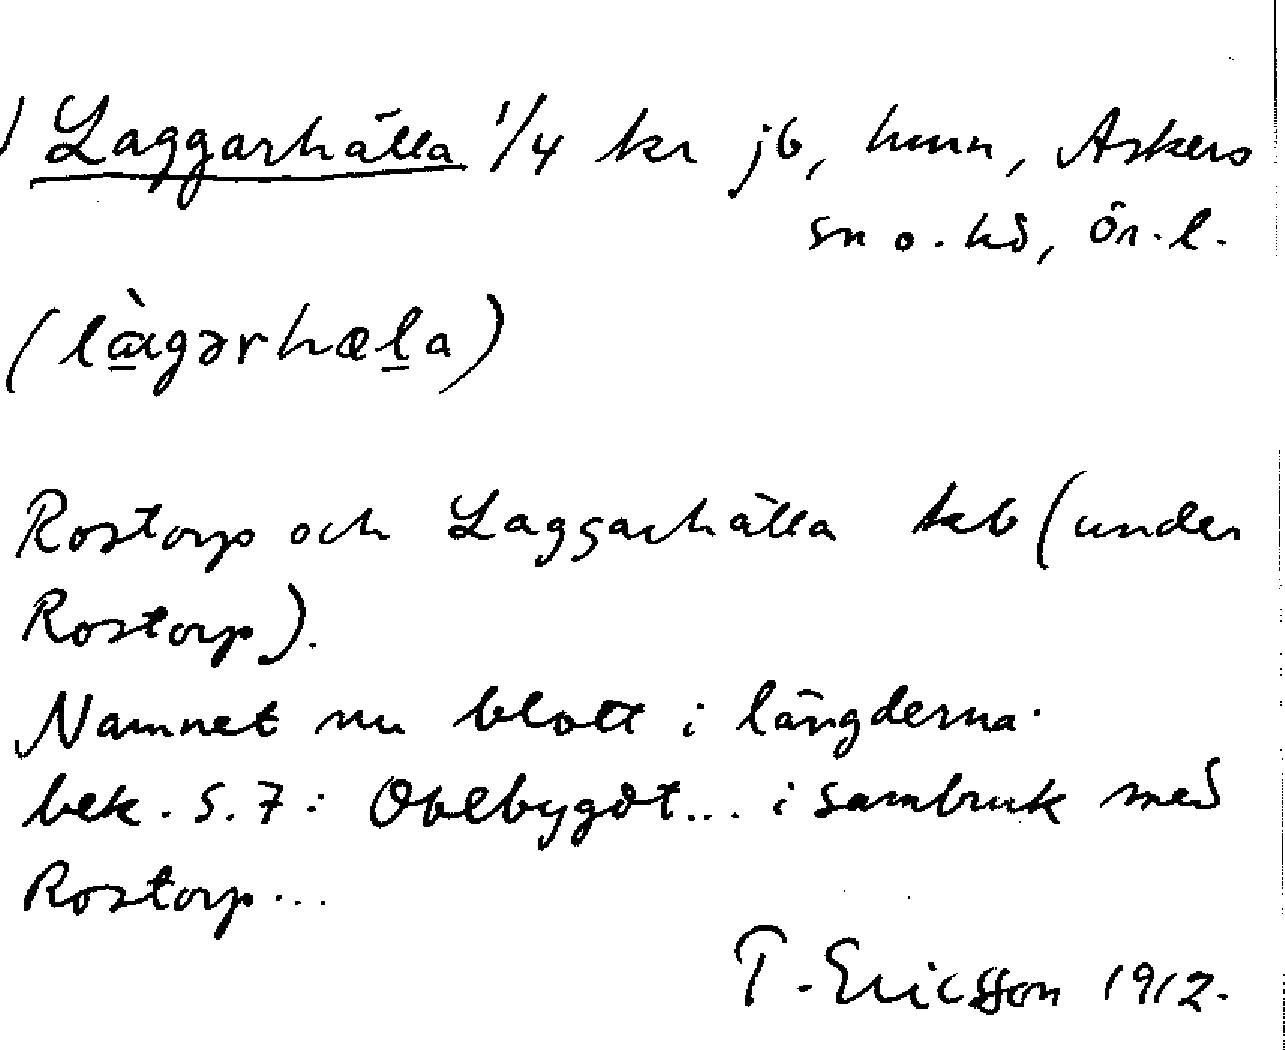 ) Laggarhälla 1/4 kr jb, hmn, Askers
sn o. hd, Ör. l.
(làgərhæla)
Rostorp och Laggarhälla kb (under
Rostorp).
Namnet nu blott i längderna.
bek. s. 7: Obebyggt... i sambruk med
Rostorp...
T. Ericsson 1912.